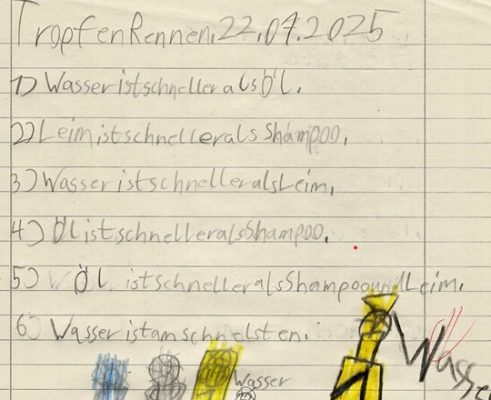 TropfenRennen, 22.07.2025
1) Wasseristschneller als Öl.
2) Leimistschnelleralsshampoo.
3) WasseristschnelleralsLeim.
4) ÖlistschnelleralsShampoo.
5) Öl istschnelleralsShampoo und Leim.
6) Wasseristamschnelsten.
Wasser
Wasser